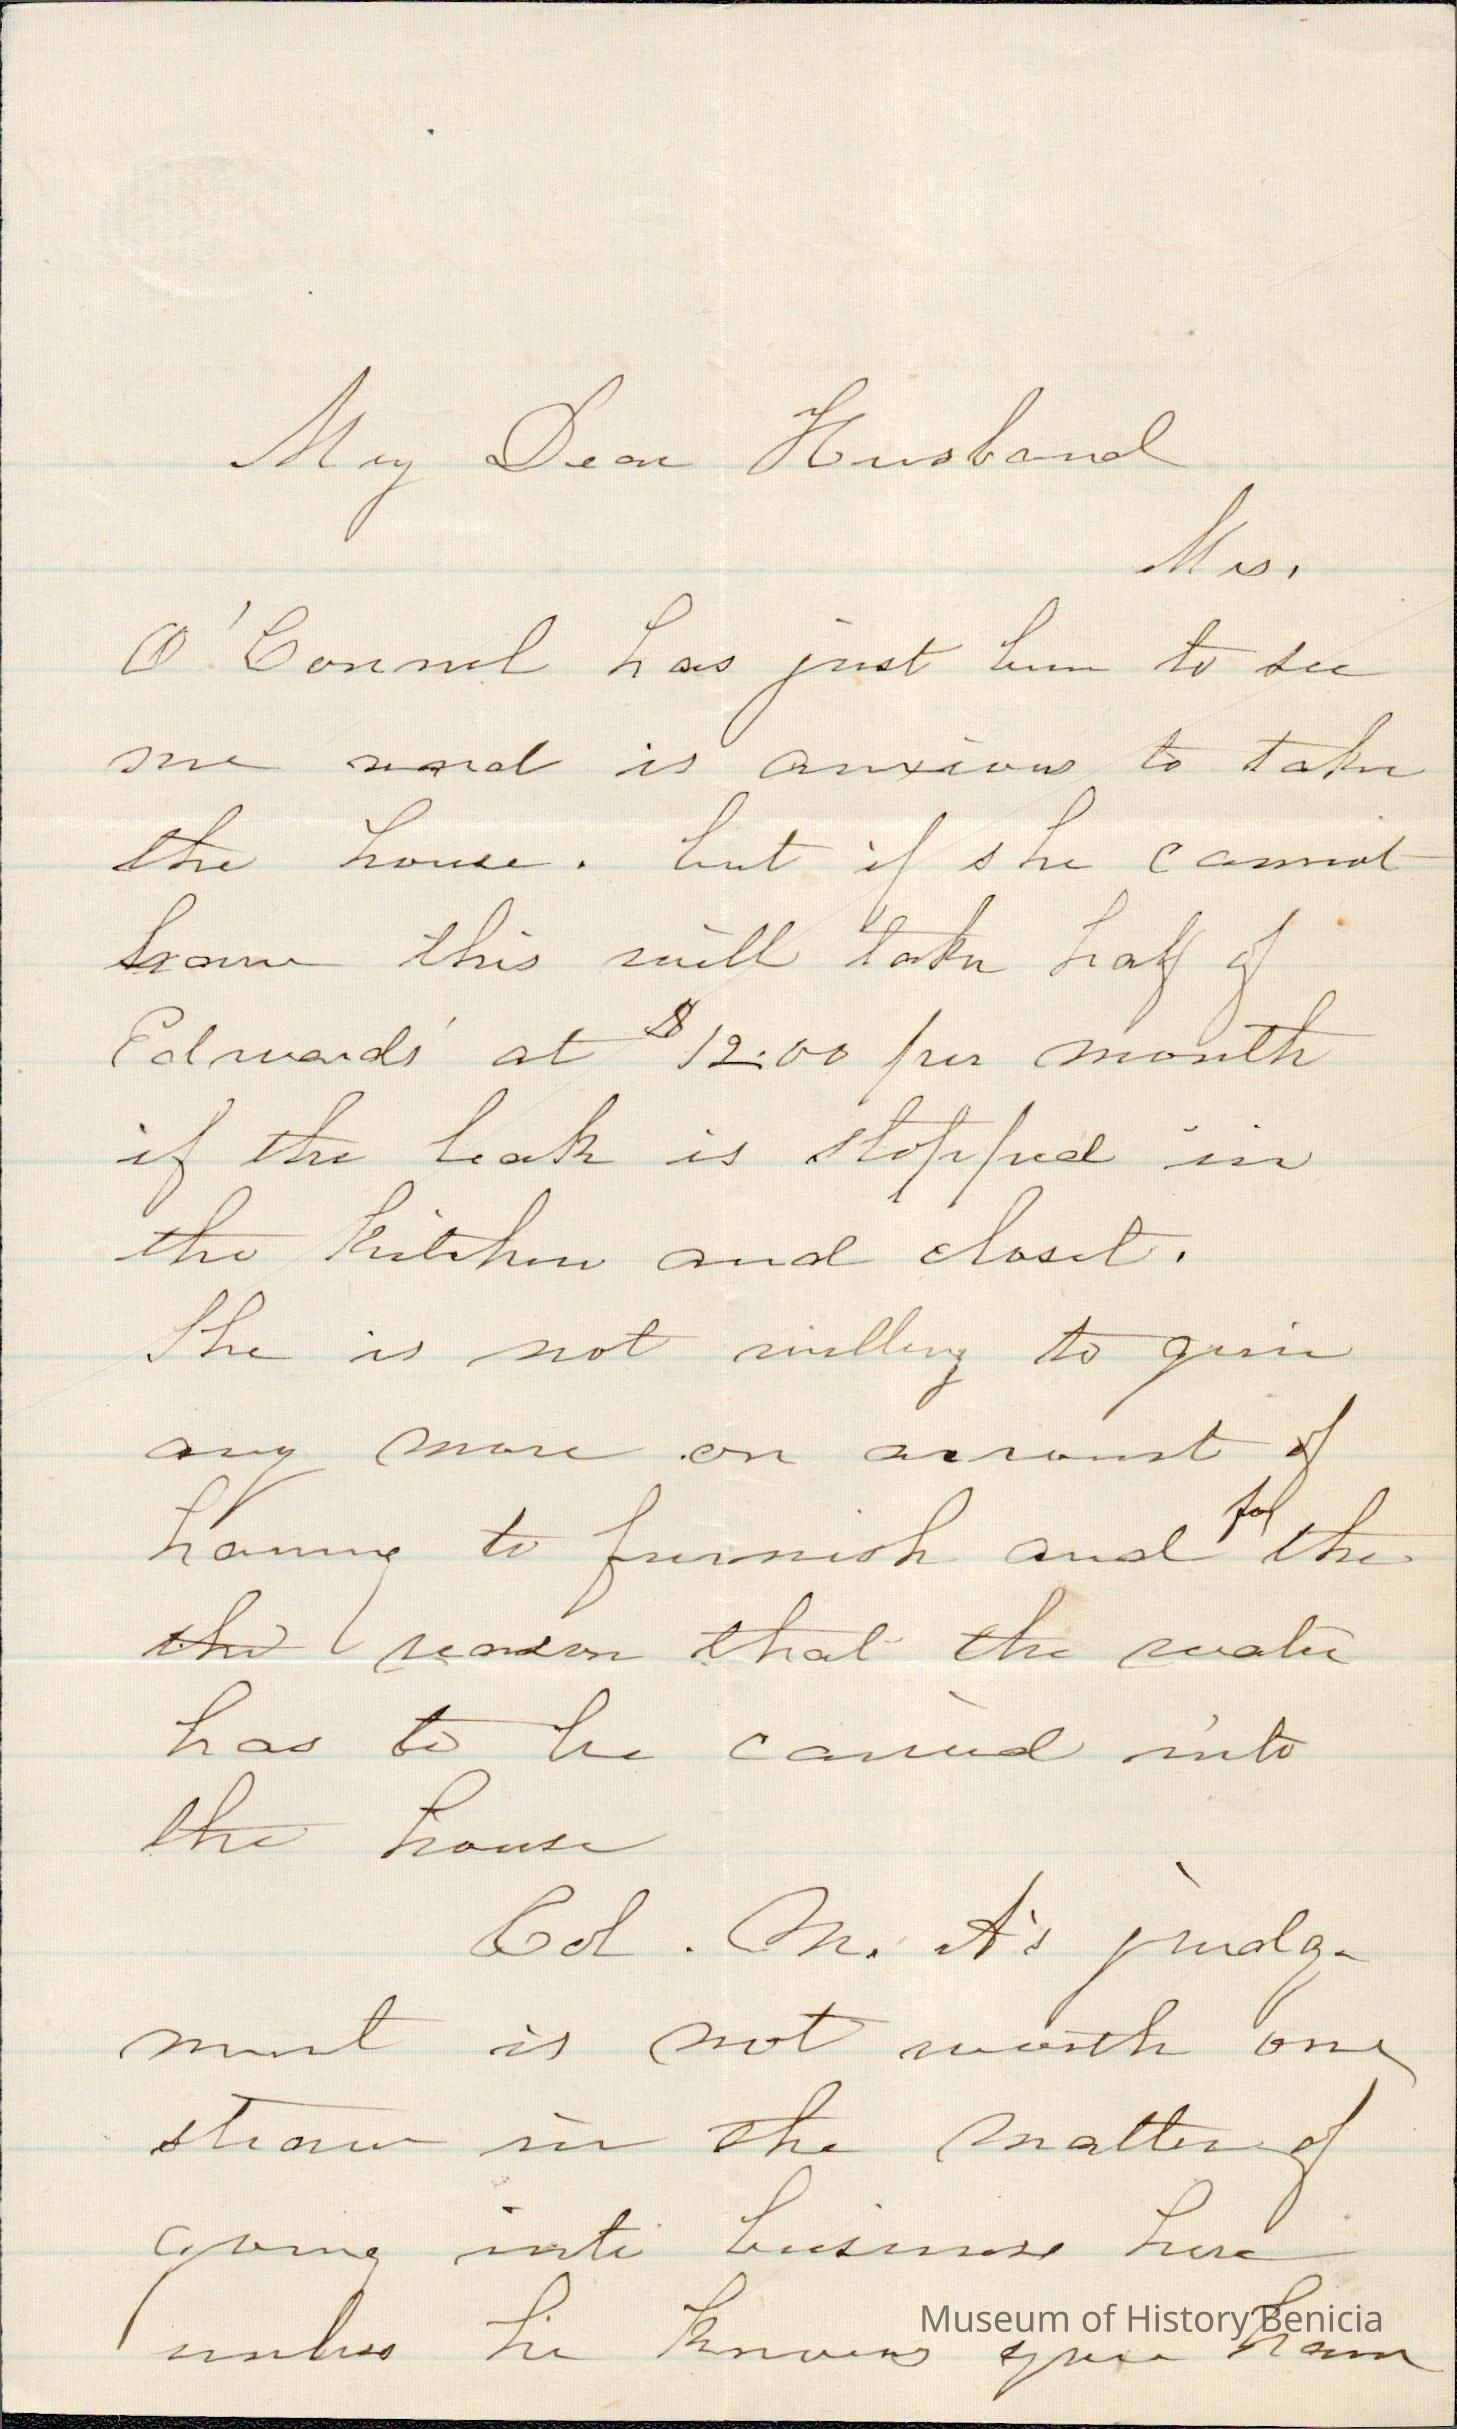 My Dear Husband
Mrs.
O'Connel has just been to see
me and is anxious to take
the house. but if she cannot
have this will take half of
Edwards' at $12.00 per month
if the leak is stopped in
the kitchen and closet.
She is not willing to give
any more on account of
having to furnish and for the
the reason that the water
has to be carried into
the house
Col. M. A's judg-
ment is not worth one
straw in the matter of
going into business here
unless he knows you have
Museum of History Benicia